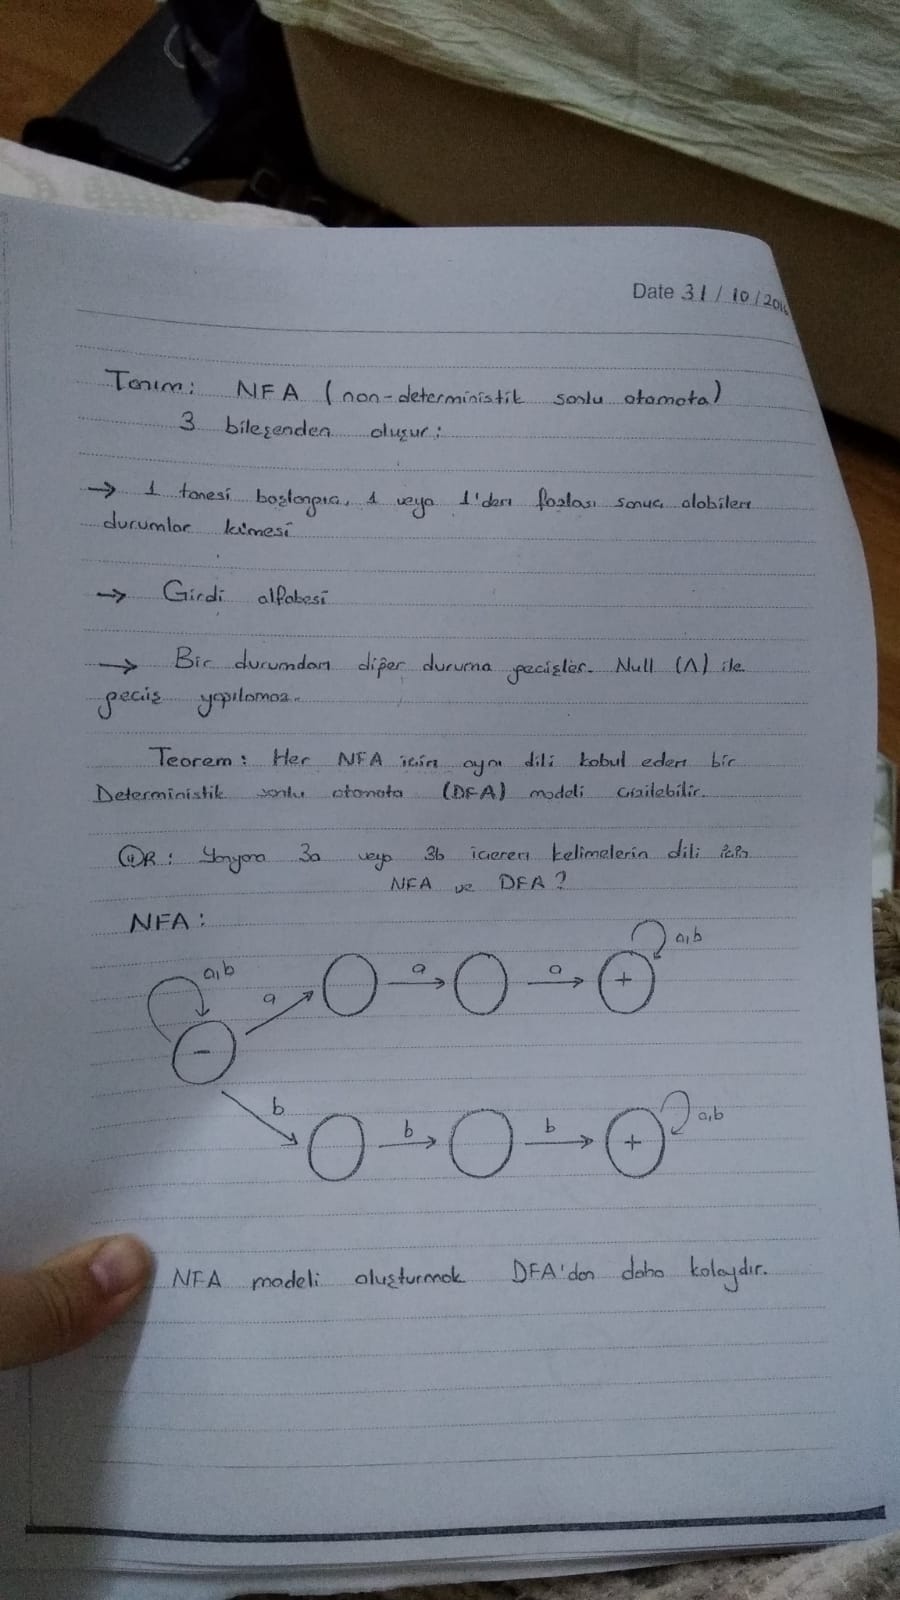 Date 31/10/2016
Tanım: NFA (non-deterministik sonlu otomata)
3 bileşenden oluşur:
→ 1 tanesi başlangıç, 1 veya 1'den fazlası sonuç olabilen
durumlar kümesi
→ Girdi alfabesi
→ Bir durumdan diğer duruma geçişler. Null (Λ) ile
geçiş yapılamaz.
Teorem: Her NFA için aynı dili kabul eden bir
Deterministik sonlu otomata (DFA) modeli çizilebilir.
ÖR: Yanyana 3a veya 3b içeren kelimelerin dili için
NFA ve DFA?
NFA:
a,b
a a a + a,b
-
b b b + a,b
NFA modeli oluşturmak DFA'dan daha kolaydır.